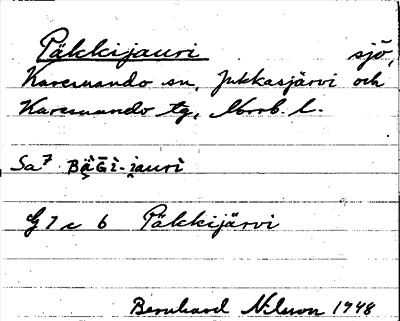 Päkkijauri sjö,
Karesuando sn, Jukkasjärvi och
Karesuando tg, Norrb. l.
Sa7 Bạ̈̀Ḡi-i̯auri
G 7 c 6 Päkkijärvi
Bernhard Nilsson 1948